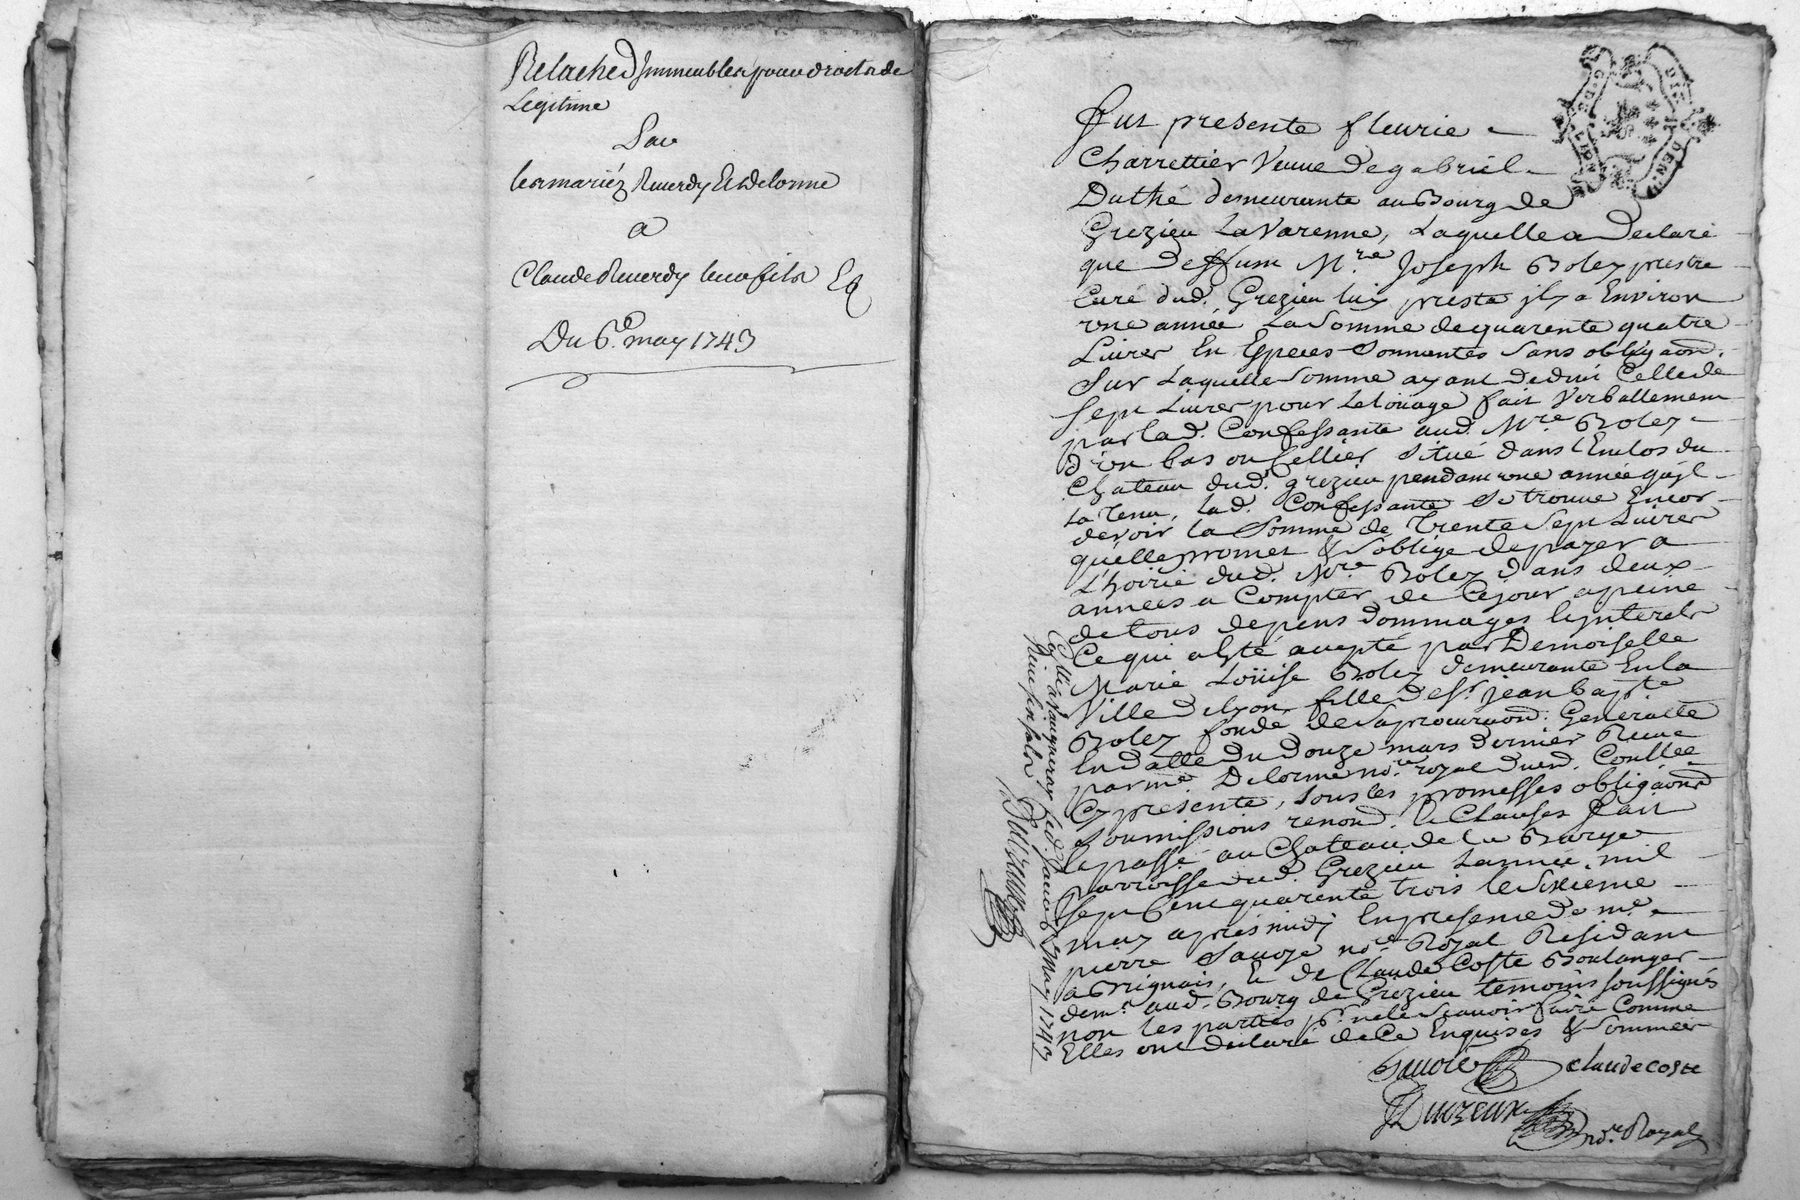 Relache d'jmmeubles pour droits de
Legitime
Par
les mariéz Reverdy Et delorme
a
Claude Reverdy leur fils Et
Du 6e. may 1743
Fut presente fleurie
Charrettier Veuve de gabriel
Duthé demeurante au Bourg de
Grezieu La Varenne, Laquelle a Declaré
que deffunt Mre Joseph Bolez prestre
Curé dud. Grezieu luy presta jl y a Environ
une année La Somme de quarente quatre
Livres En Especes Sonnantes Sans obligaon.
Sur Laquelle Somme ayant deduit Celle de
Sept Livres pour Le loüage fait Verballement
par lad. Confessante aud. Mre Bolez
d'un bas ou Cellier Situé dans l'Enclos du
Chateau dud. grezieu pendant une année qu'jl
La Tenu, Lad. Confessante Se trouve Encor
devoir la Somme de Trente Sept Livres
qu'elle promet & S'oblige de payer a
L'hoirie dud. Mre Bolez dans deux
années a Compter de Cejour a peine
de tous depens dommages Et jnterets
Ce qui a Esté accepté par Demoiselle
Marie Loüise Bolez demeurante En la
Ville de Lyon fille de Sr. jean bapte
Bolez fondé de Sa procuraon. Generalle
En datte du douze mars dernier Receue
par me. Delorme nore royal dud.
Cy presente, Sous les promesses obligaons
Soumissions renon. & Clauses Fait
Et passé au Chateau de la Barge
Parroisse dud. Grezieu L'année mil
Sept Cent quarente trois le Sixieme
may apres midy En presence de me
pierre Savoye nore Royal Residant
a Brignais, Et de Claude Coste Boulanger
demt. aud. Bourg de Grezieu temoins Soussignés
non les parties pr. ne le Scavoir faire Comme
Elles ont declaré de Ce Enquises & Sommées
Savoie Claude Coste
nore Royal
Collé a Vaugneray le d. jour 6e may 1743